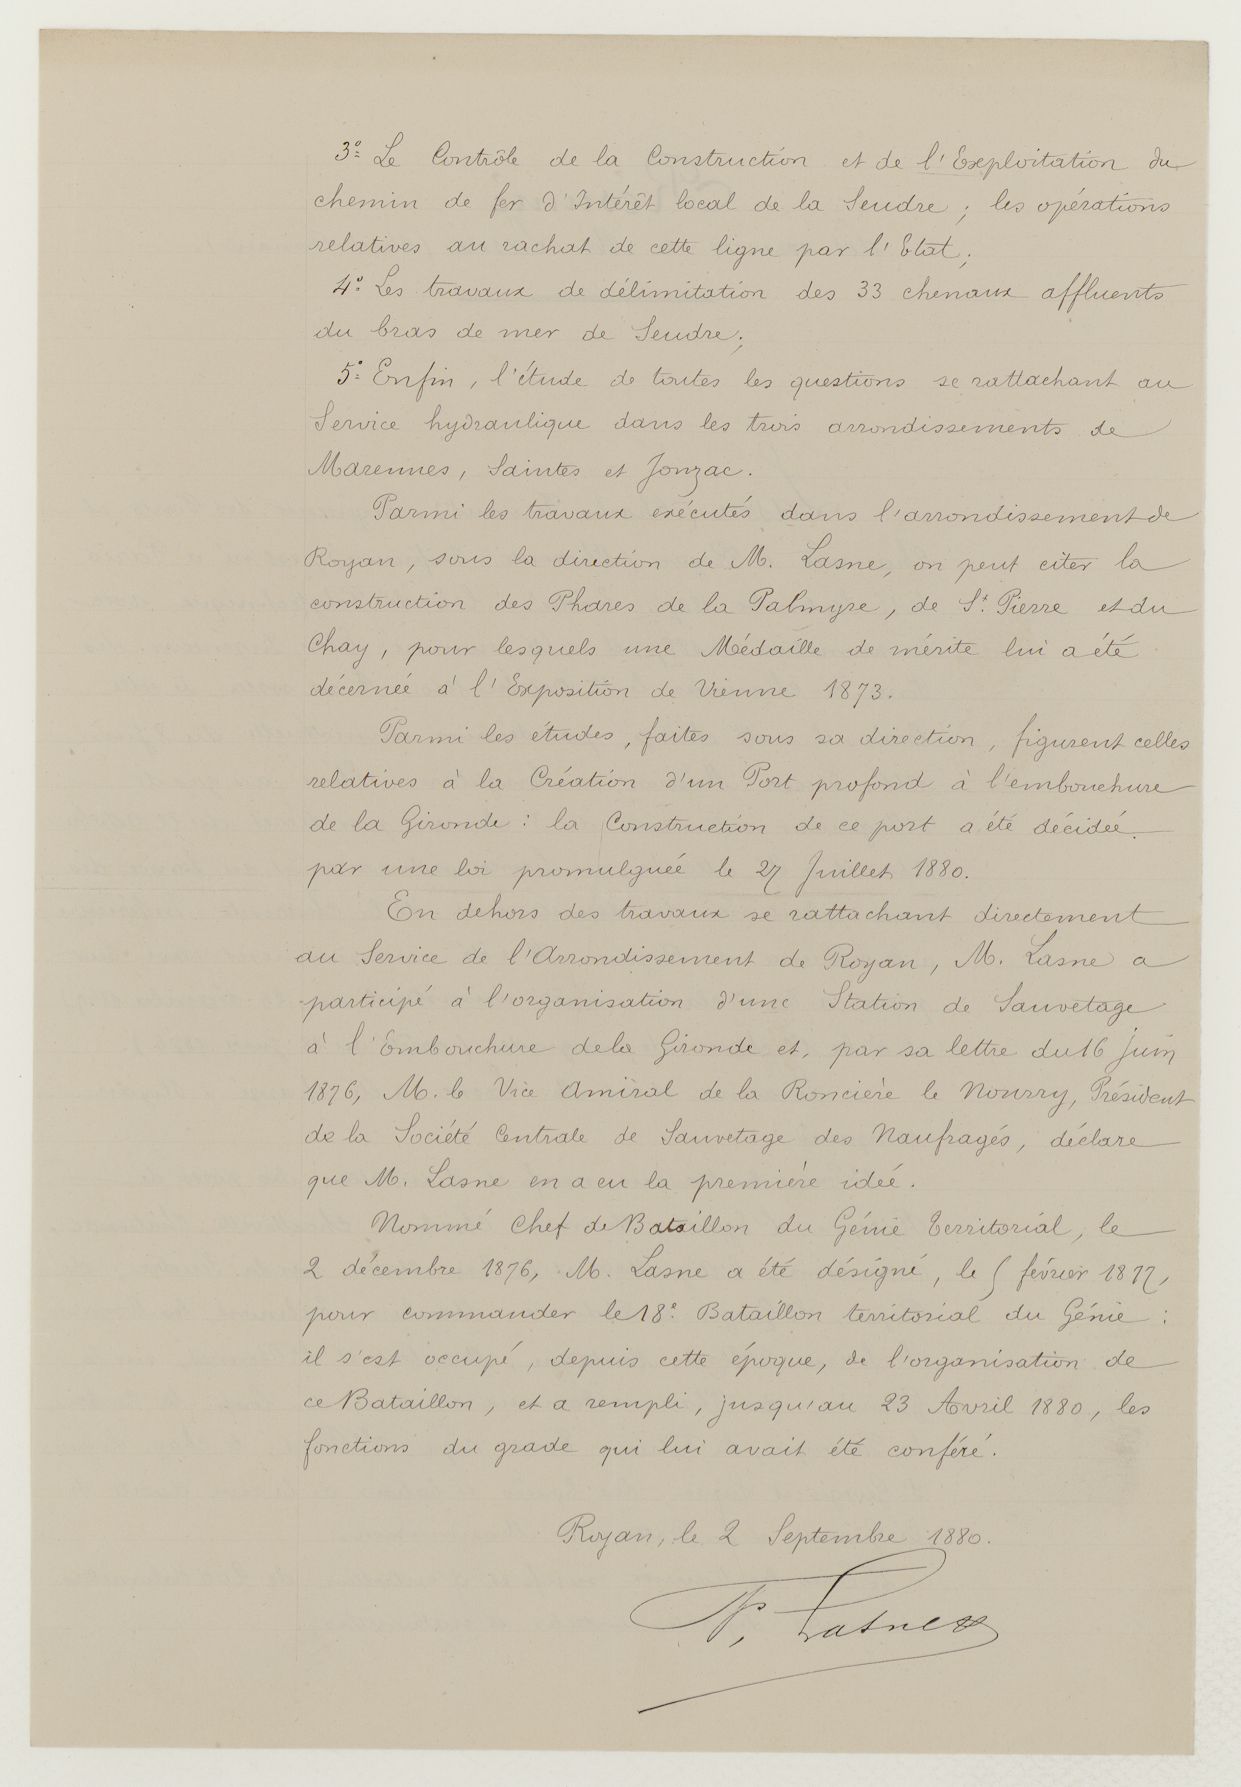 3º Le Contrôle de la Construction et de l'Exploitation du
chemin de fer d'Intérêt local de la Seudre ; les opérations
relatives au rachat de cette ligne par l'Etat ;
4º Les travaux de délimitation des 33 chenaux affluents
du bras de mer de Seudre ;
5º Enfin, l'étude de toutes les questions se rattachant au
Service hydraulique dans les trois arrondissements de
Marennes, Saintes et Jonzac.
Parmi les travaux exécutés dans l'arrondissement de
Royan, sous la direction de M. Lasne, on peut citer la
construction des Phares de la Palmyre, de St. Pierre et du
Chay, pour lesquels une Médaille de mérite lui a été
décernée à l'Exposition de Vienne 1873.
Parmi les études, faites sous sa direction, figurent celles
relatives à la Création d'un Port profond à l'embouchure
de la Gironde : la Construction de ce port a été décidée
par une loi promulguée le 27 Juillet 1880.
En dehors des travaux se rattachant directement
au Service de l'Arrondissement de Royan, M. Lasne a
participé à l'organisation d'une Station de Sauvetage
à l'Embouchure de la Gironde et, par sa lettre du 16 Juin
1876, M. le Vice Amiral de la Roncière le Nourry, Président
de la Société Centrale de Sauvetage des Naufragés, déclare
que M. Lasne en a eu la première idée.
Nommé Chef de Bataillon du Génie territorial, le
2 décembre 1876, M. Lasne a été désigné, le 5 février 1877,
pour commander le 18º Bataillon territorial du Génie :
il s'est occupé, depuis cette époque, de l'organisation de
ce Bataillon, et a rempli, jusqu'au 23 Avril 1880, les
fonctions du grade qui lui avait été conféré.
Royan, le 2 Septembre 1880.
P. Lasne